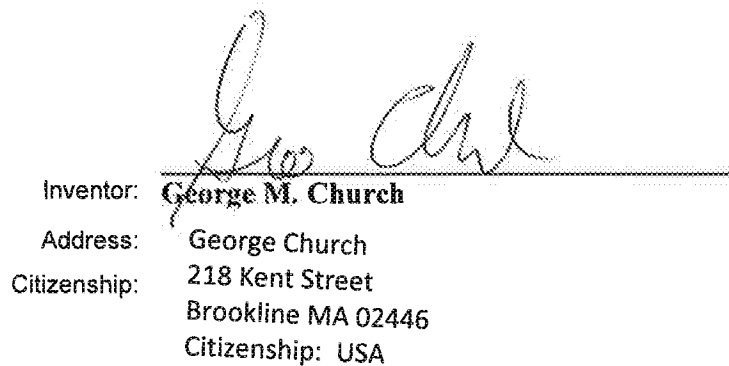 Geo Church
Inventor: George M. Church
Address: George Church
Citizenship: 218 Kent Street
Brookline MA 02446
Citizenship: USA